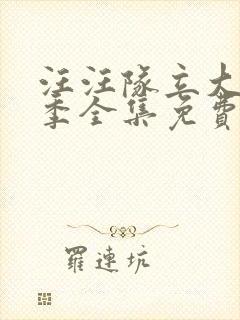 汪汪隊立大
季全集免費
羅連坑